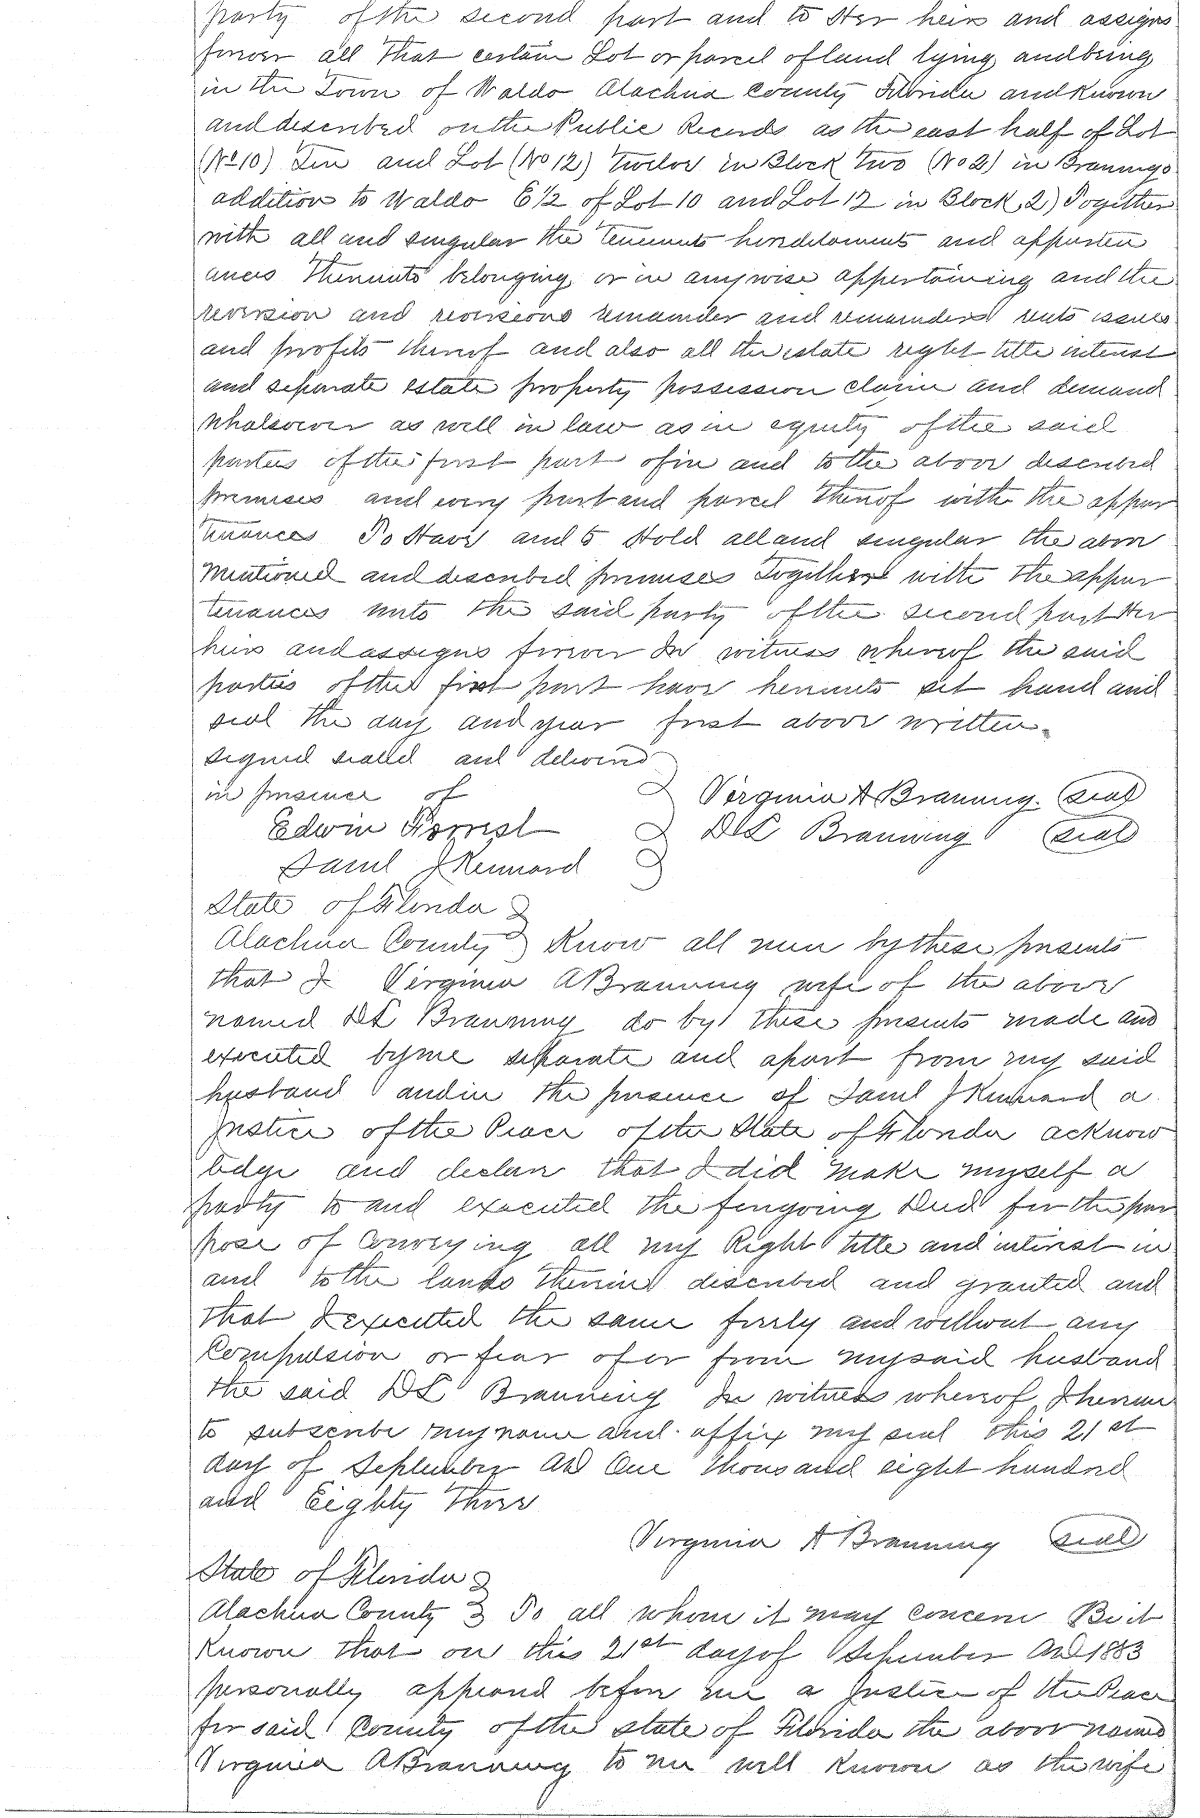 party of the second part and to Her heirs and assigns
forever all that certain Lot or parcel of land lying and being
in the Town of Waldo Alachua County Florida and Known
and described on the Public Records as the east half of Lot
(No 10) Ten and Lot (No 12) Twelve in Block Two (No 2) in Brannings
addition to Waldo E 1/2 of Lot 10 and Lot 12 in Block 2) Together
with all and singular the tenements hereditaments and apperten
ances thereunto belonging or in anywise appertaining and the
reversion and reversions remainder and remainders rents issues
and profits thereof and also all the estate right title interest
and separate estate property possession claim and demand
whatsoever as well in law as in equity of the said
parties of the first part of in and to the above described
premises and every part and parcel thereof with the appur
tenances To Have and to Hold all and singular the above
mentioned and described premises Together with the appur
tenances unto the said party of the second part Her
heirs and assigns forever In witness whereof the said
parties of the first part have hereunto set hand and
seal the day and year first above written.
signed sealed and delivered
in presence of Virginia A Branning. seal
Edwin Forrest D L Branning seal
Saml J Kennard
State of Florida
Alachua County Know all men by these presents
that I Virginia A Branning wife of the above
named D L Branning do by these presents made and
executed by me separate and apart from my said
husband and in the presence of Saml J Kennard a
Justice of the Peace of the State of Florida acknow
ledge and declare that I did make myself a
party to and executed the foregoing Deed for the pur
pose of Conveying all my Right title and interest in
and to the lands therein described and granted and
that I executed the same freely and without any
Compulsion or fear of or from my said husband
the said D L Branning In witness whereof I hereun
to subscribe my name and affix my seal this 21st
day of September AD One thousand eight hundred
and Eighty Three
Virginia A Branning seal
State of Florida
Alachua County To all whom it may concern Be it
Known that on this 21st day of September AD 1883
personally appeared before me a Justice of the Peace
for said County of the state of Florida the above named
Virginia A Branning to me well known as the wife